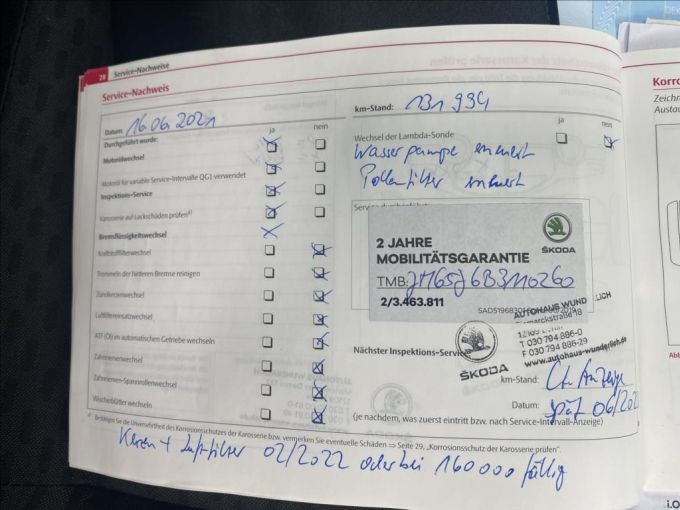 28 Service-Nachweise
Service-Nachweis
Datum: 16.06.2021
Durchgeführt wurde: ja nein
Motorölwechsel
Motoröl für variable Service-Intervalle QG1 verwendet
Inspektions-Service
Karosserie auf Lackschäden prüfen a)
Bremsflüssigkeitswechsel
Kraftstofffilterwechsel
Trommeln der hinteren Bremse reinigen
Zündkerzenwechsel
Luftfiltereinsatzwechsel
ATF (Öl) im automatischen Getriebe wechseln
Zahnriemenwechsel
Zahnriemen-Spannrollenwechsel
Wischerblätter wechseln
km-Stand: 131 994
ja nein
Wechsel der Lambda-Sonde
Wasserpumpe erneuert
Pollenfilter erneuert
2 JAHRE
MOBILITÄTSGARANTIE
ŠKODA
TMB:
2/3.463.811
AUTOHAUS WUNDERLICH
T 030 794 886-0
F 030 794 886-29
www.autohaus-wunderlich.de
ŠKODA
Nächster Inspektions-Service
km-Stand: Lt. Anzeige
Datum: spät 06/202
(je nachdem, was zuerst eintritt bzw. nach Service-Intervall-Anzeige)
a) Bestätigen Sie die Unversehrtheit des Korrosionsschutzes der Karosserie bzw. vermerken Sie eventuelle Schäden ⇒ Seite 29, „Korrosionsschutz der Karosserie prüfen".
Kerzen + Luftfilter 02/2022 oder bei 160000 fällig
Korro
Zeichn
Austau
Abb